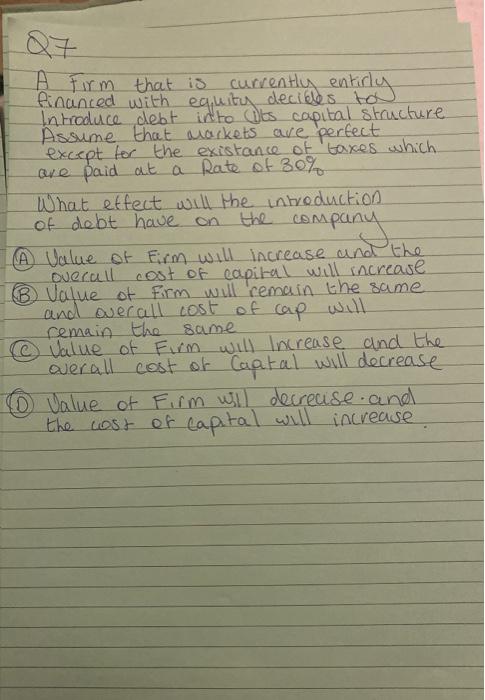 Q7
A Firm that is currently entirly
financed with equity decides to
Introduce debt into its capital structure
Assume that markets are perfect
except for the existance of taxes which
are paid at a Rate of 30%
What effect will the introduction
of debt have on the company
(A) Value of Firm will increase and the
overall cost of capital will increase
(B) Value of Firm will remain the same
and overall cost of cap will
remain the same
(C) Value of Firm will Increase and the
overall cost of Capital will decrease
(D) Value of Firm will decrease. and
the cost of capital will increase.